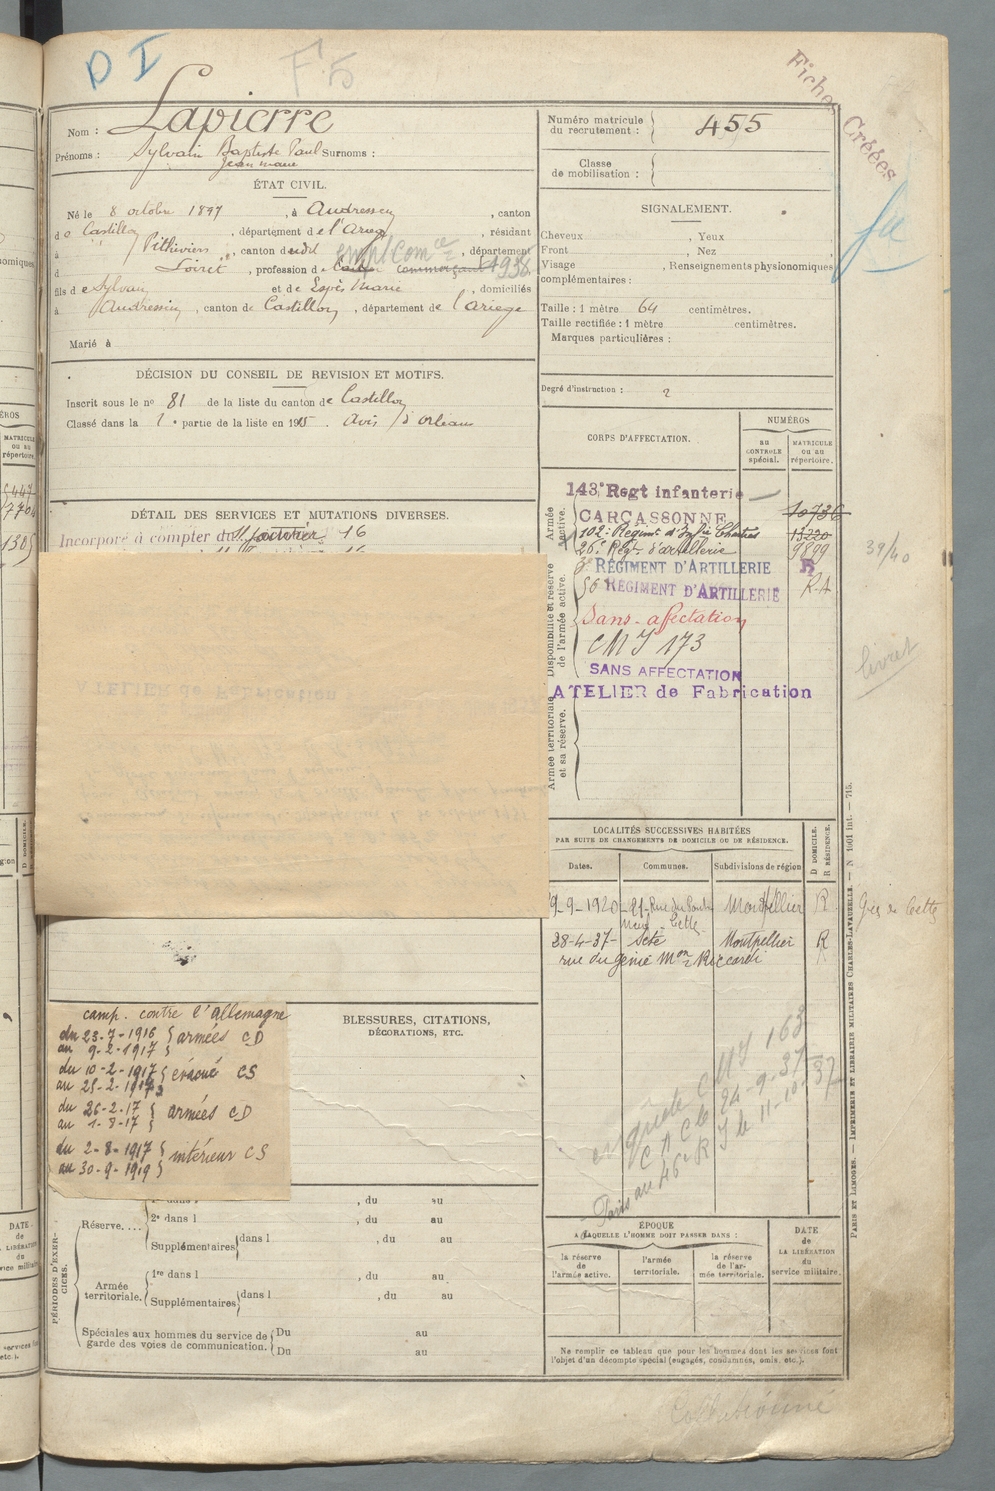 D I
F 5
Fiches Créées
Nom : Lapierre
Prénoms : Sylvain Baptiste Paul Surnoms :
Jean Marie
Numéro matricule du recrutement : 455
Classe de mobilisation :
ÉTAT CIVIL.
Né le 8 octobre 1897, à Audressein, canton
de Castillon, département de l'Arieg, résidant
à Pithiviers, canton de udit, département
d Loiret, profession de commerçant empl Com ce 1938
fils de Sylvain et de Espès Marie, domiciliés
à Audressein, canton de Castillon, département de l'ariege
Marié à
SIGNALEMENT.
Cheveux , Yeux
Front , Nez
Visage , Renseignements physionomiques
complémentaires :
Taille : 1 mètre 64 centimètres.
Taille rectifiée : 1 mètre centimètres.
Marques particulières :
Degré d'instruction : 2
DÉCISION DU CONSEIL DE REVISION ET MOTIFS.
Inscrit sous le n° 81 de la liste du canton de Castillon
Classé dans la 1 e partie de la liste en 1915. Avis d'orleans
DÉTAIL DES SERVICES ET MUTATIONS DIVERSES.
Incorporé à compter du 16
CORPS D'AFFECTATION.
NUMÉROS
au CONTROLE spécial.
MATRICULE ou au répertoire.
Armée active.
143e Regt infanterie
CARCASSONNE 10736
102e Régiment d'Inf rie Chartres 13220
26e Régt d'artillerie 9899
Disponibilité et réserve de l'armée active.
3e RÉGIMENT D'ARTILLERIE R
56 RÉGIMENT D'ARTILLERIE R.A
Sans-afectation
CMJ 173
SANS AFFECTATION
ATELIER de Fabrication
Armée territoriale et sa réserve.
39/40
livret
LOCALITÉS SUCCESSIVES HABITÉES
PAR SUITE DE CHANGEMENTS DE DOMICILE OU DE RÉSIDENCE.
Dates. Communes. Subdivisions de région
D DOMICILE. R RÉSIDENCE.
9-9-1920 21-Rue du Pont Neuf - Cette Montpellier R
28-4-37- Sète Montpellier R
rue du génie Mon Riccardi
de Cette
enquête CMJ 163
24-9-37
le 11-10-37
camp. contre l'allemagne
du 23-7-1916 } armées CD
au 9-2-1917 }
du 10-2-1917 } évacué CS
au 25-2-1917
du 26-2-17 { armées CD
au 1-8-17 }
du 2-8-1917 } intérieur CS
au 30-9-1919 }
BLESSURES, CITATIONS,
DÉCORATIONS, ETC.
PÉRIODES D'EXERCICES.
Réserve....
1re dans l , du au
2e dans l , du au
Supplémentaires dans l , du au
Armée territoriale.
1re dans l , du au
Supplémentaires dans l , du au
Spéciales aux hommes du service de garde des voies de communication.
Du au
Du au
ÉPOQUE
A LAQUELLE L'HOMME DOIT PASSER DANS :
la réserve de l'armée active.
l'armée territoriale.
la réserve de l'armée territoriale.
DATE de LA LIBÉRATION du service militaire.
Ne remplir ce tableau que pour les hommes dont les services font
l'objet d'un décompte spécial (engagés, condamnés, omis, etc.).
PARIS ET LIMOGES. — IMPRIMERIE ET LIBRAIRIE MILITAIRES CHARLES-LAVAUZELLE. — N 1001 int. — 715.
Collationné